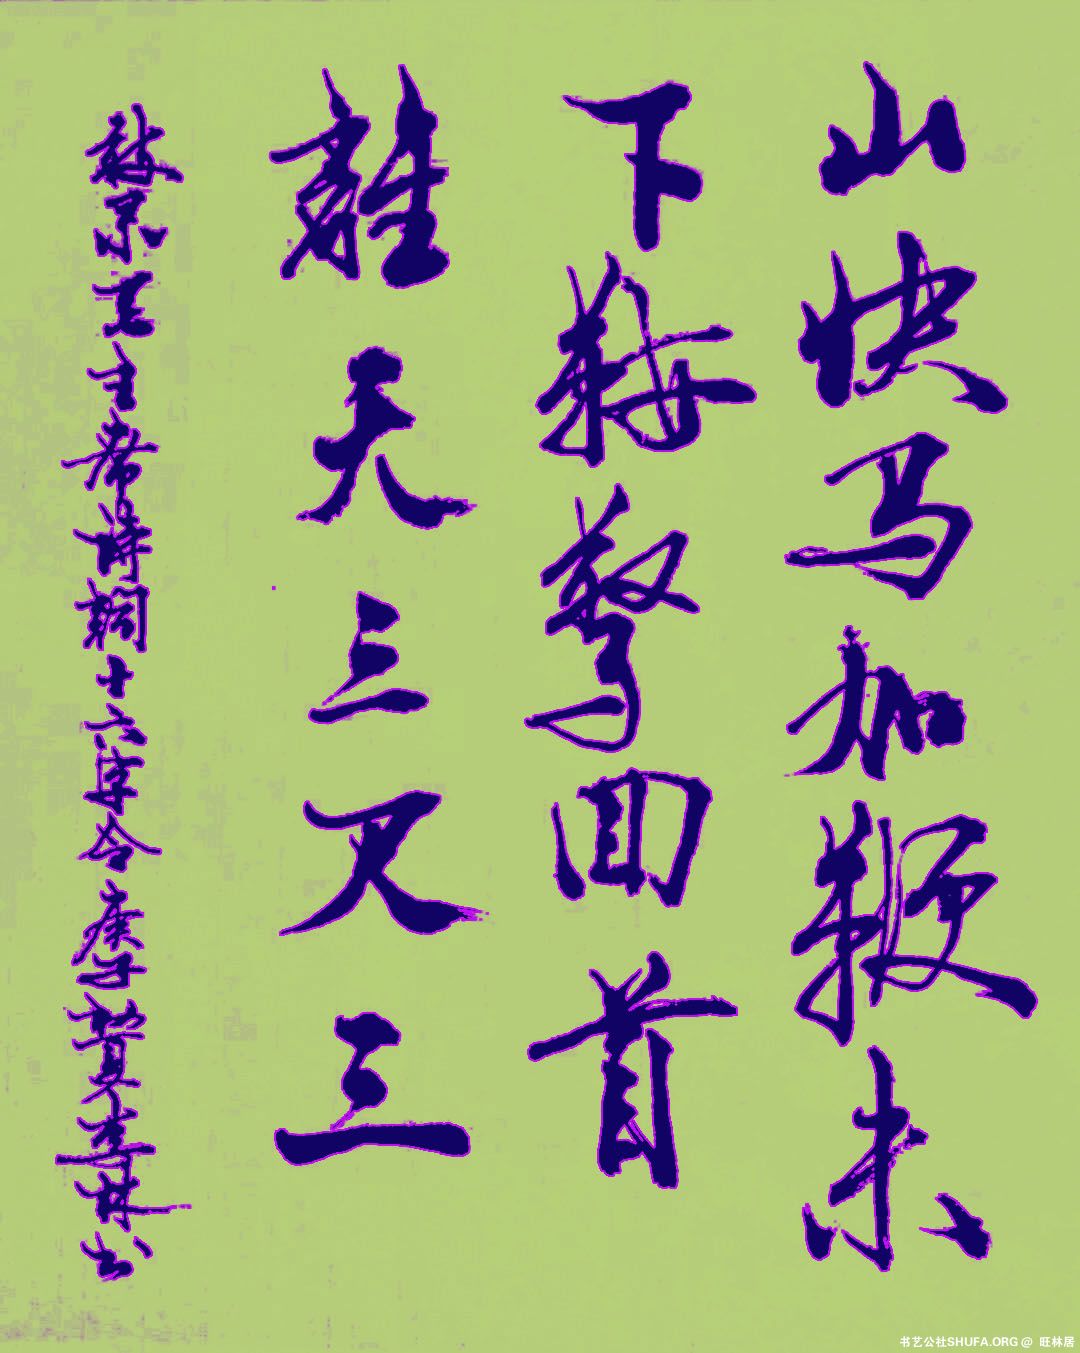 山快马加鞭未
下鞍驚回首
離天三尺三
敬录毛主席诗词十六字令庚子贺李林书
书艺公社SHUFA.ORG @ 旺林居